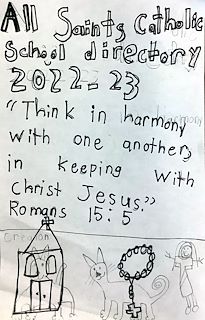 All Saints Catholic
School directory
2022-23
“Think in harmony
with one another,
in keeping with
Christ Jesus.”
Romans 15:5